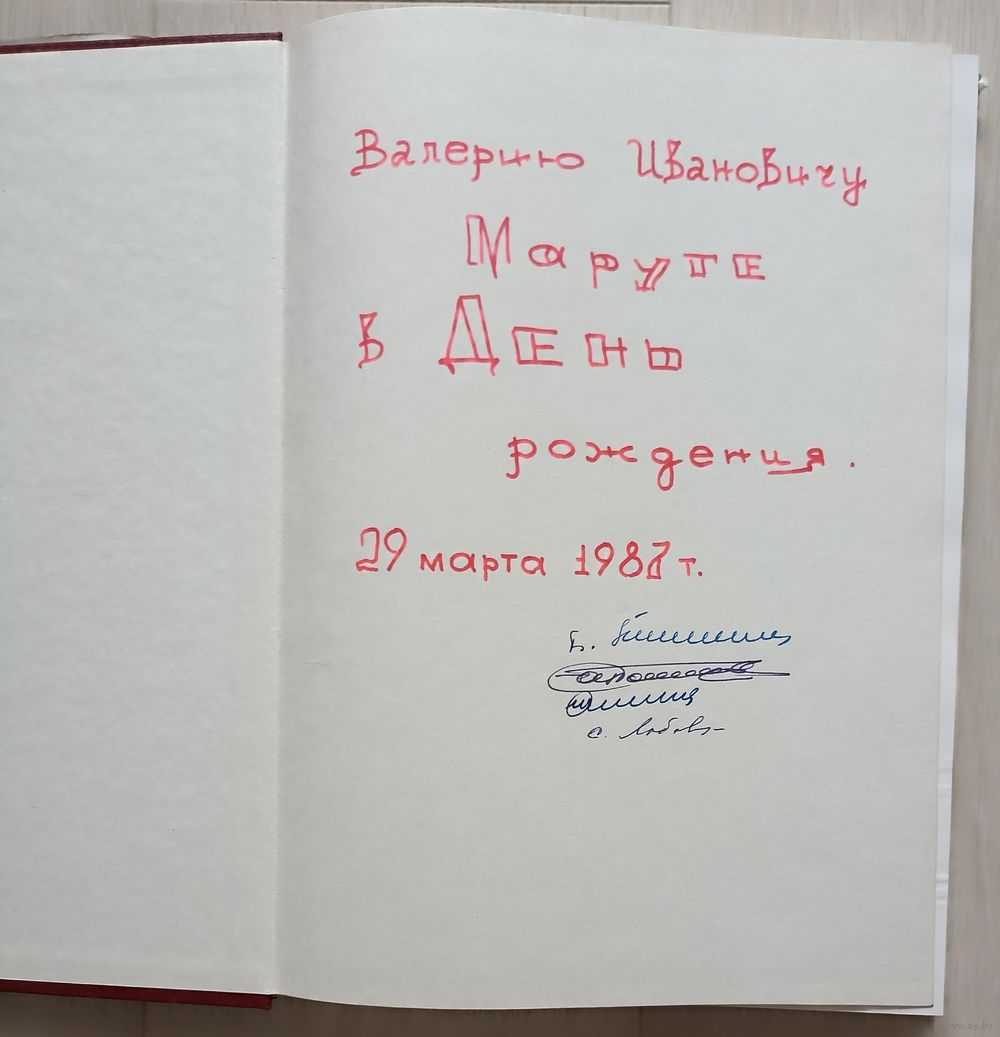 Валерию Ивановичу
Маруте
в День
рождения.
29 марта 1987 г.
www.ay.by